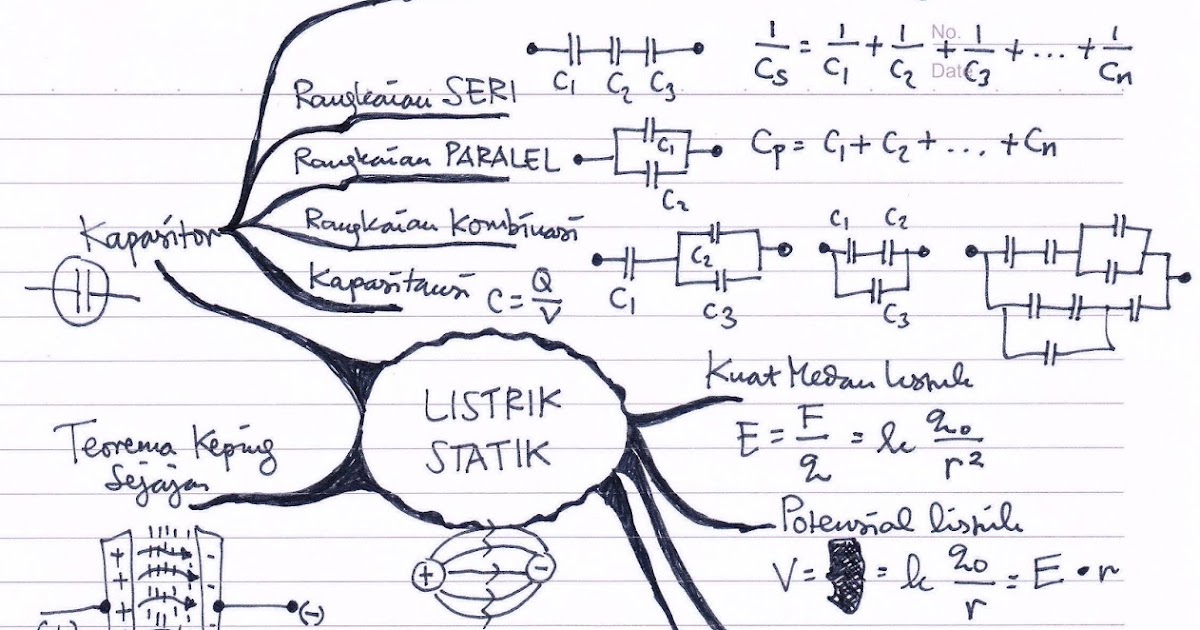 No.
Date
C₁ C₂ C₃
1/Cs = 1/C₁ + 1/C₂ + 1/C₃ + ... + 1/Cn
Rangkaian SERI
Rangkaian PARALEL
C₁
C₂
Cp = C₁ + C₂ + ... + Cn
Kapasitor
Rangkaian Kombinasi
C₁
C₂
C₃
C₁ C₂
C₃
Kapasitansi C = Q/V
LISTRIK
STATIK
Kuat Medan listrik
E = F/q = k q₀/r²
Teorema Keping
Sejajar
Potensial listrik
V = = k q₀/r = E • r
+ -
+ -
+ -
+ -
(+) (-)